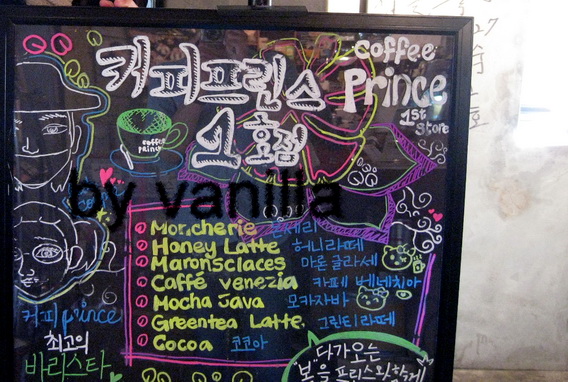 커피프린스
1호점
coffee
Prince
1st
store
coffee
prince
by vanilla
Mon.cherie 몬쉐리
Honey Latte 허니라떼
Maronsclaces 마론글라세
Caffé venezia 카페 베네치아
Mocha Java 모카자바
Greentea Latte, 그린티라떼
Cocoa 코코아
커피prince
최고의
바리스타
다가오는
봄을 프린스와함께